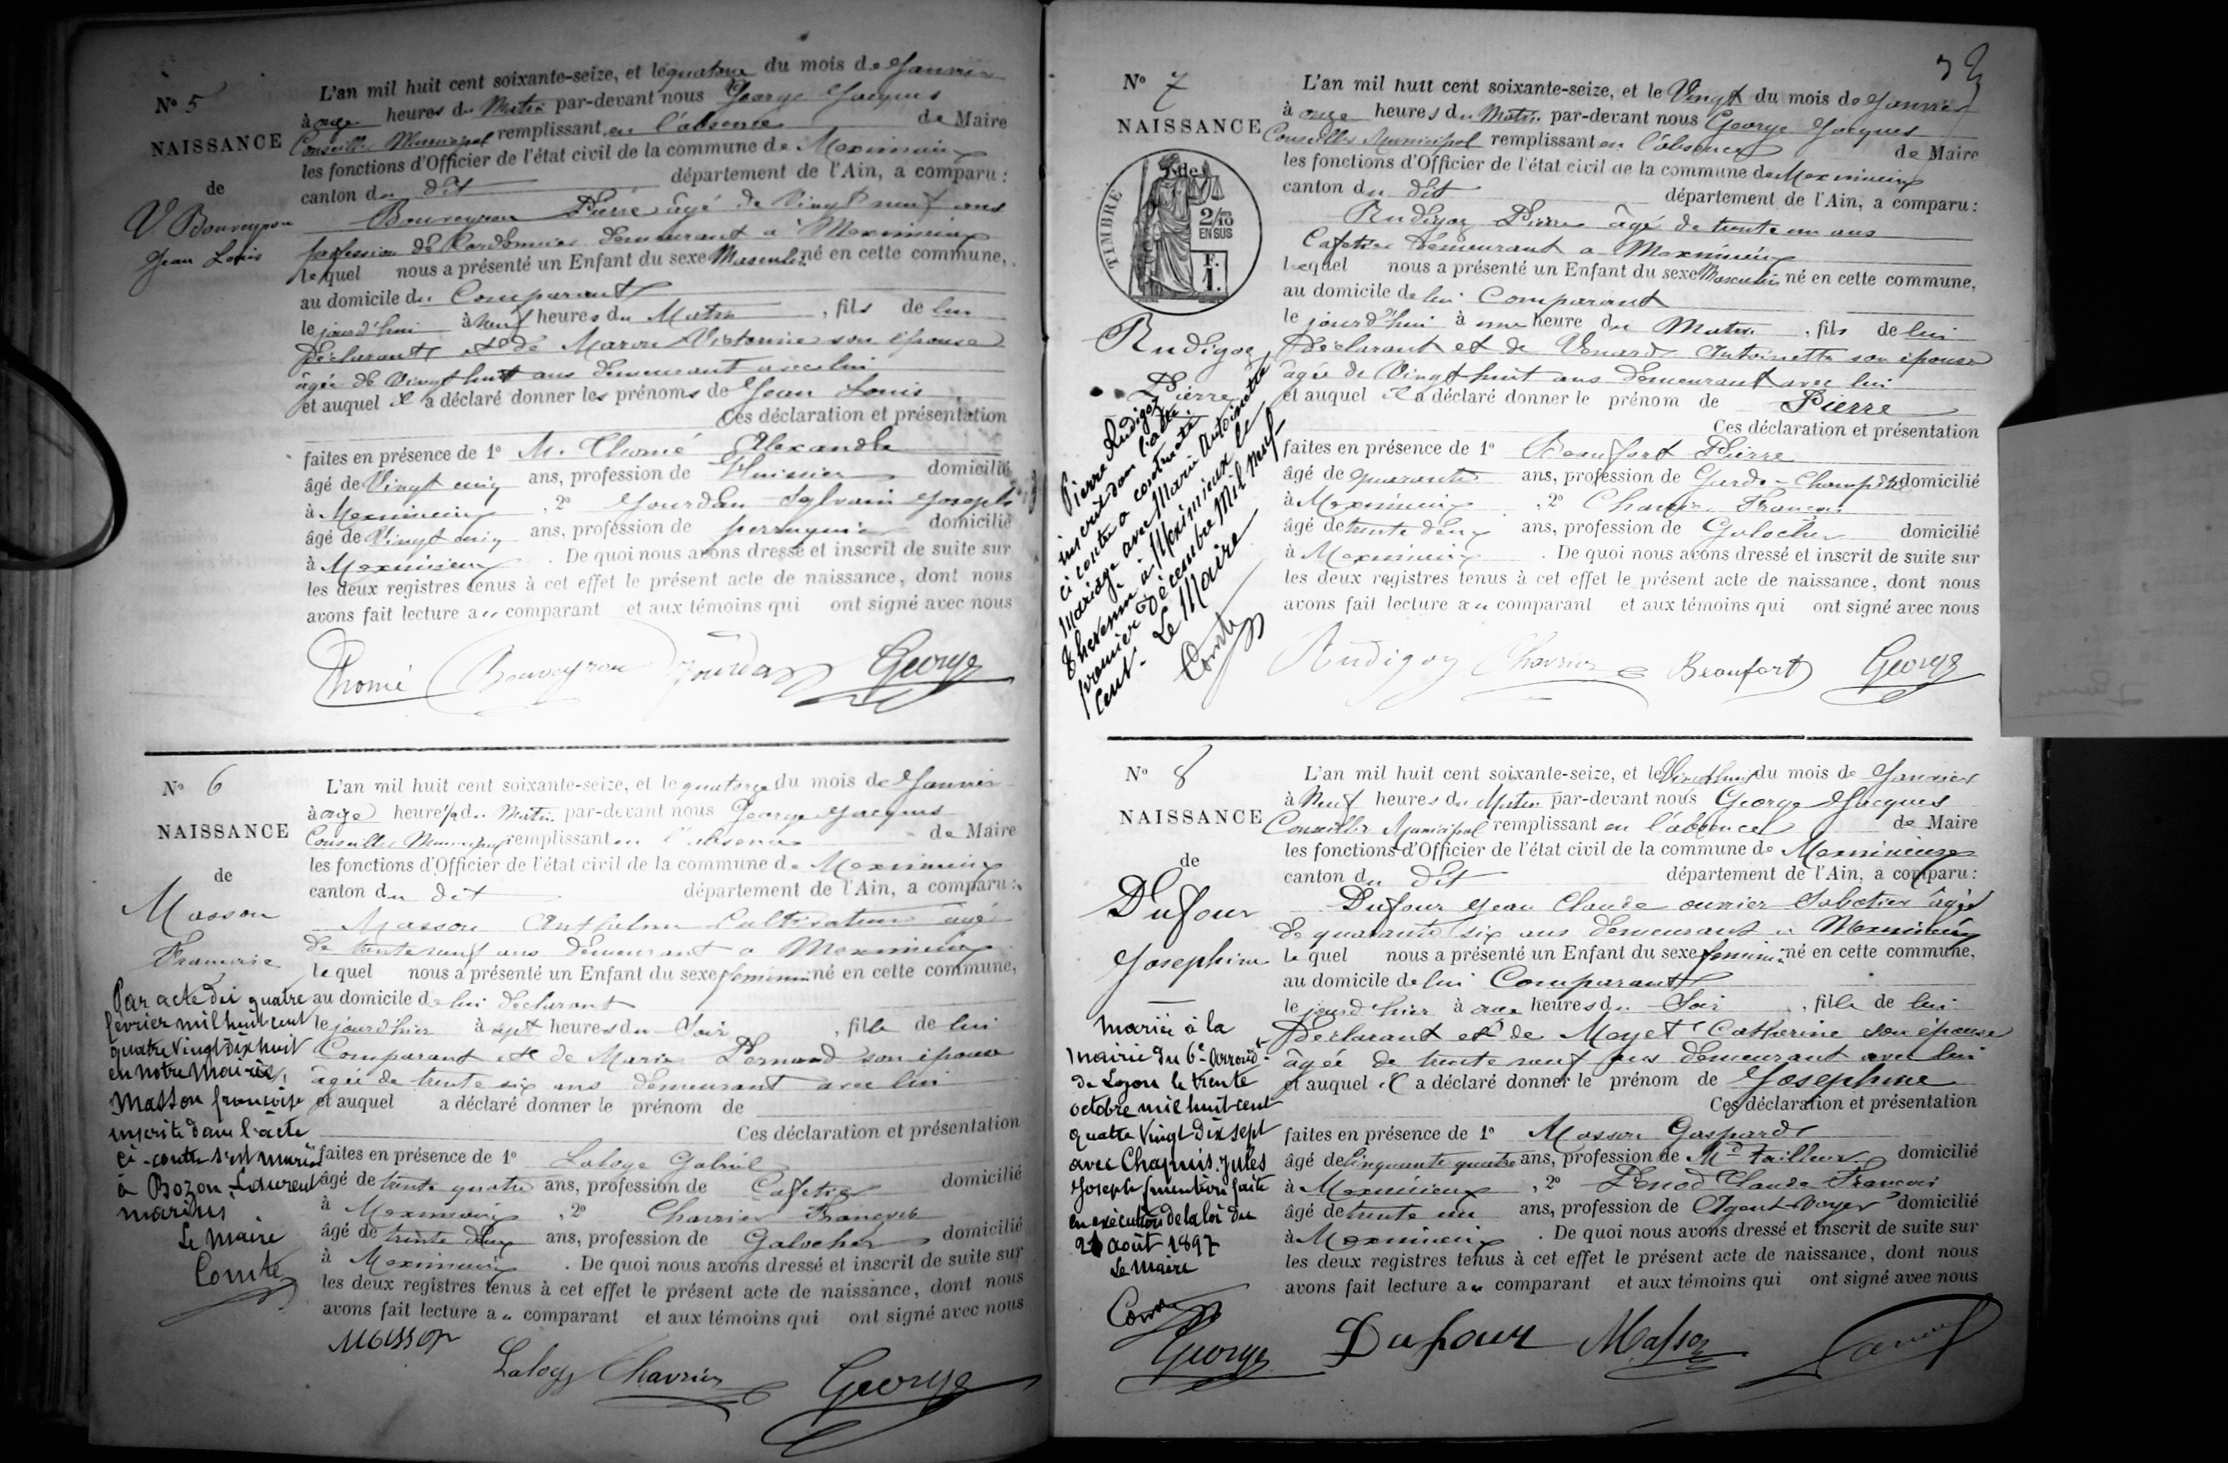 N° 5
NAISSANCE
de
V. Bouveyron
Jean Louis
L'an mil huit cent soixante-seize, et le quatorze du mois de Janvier
à onze heures du Matin par-devant nous George Jacques
Conseiller Municipal remplissant en l'absence de Maire
les fonctions d'Officier de l'état civil de la commune de Meximieux
canton du dit département de l'Ain, a comparu :
Bouveyron Pierre âgé de Vingt neuf ans
profession de Cordonnier demeurant à Meximieux
lequel nous a présenté un Enfant du sexe Masculin né en cette commune,
au domicile du Comparant
le jourd'hui à Neuf heures du Matin, fils de lui
Déclarant et de Victorine son épouse
âgée de Vingt huit ans demeurant avec lui
et auquel il a déclaré donner les prénoms de Jean Louis
Ces déclaration et présentation
faites en présence de 1° M. Thomé Alexandre
âgé de Vingt cinq ans, profession de Huissier domicilié
à Meximieux, 2° Jourdan Sylvain Joseph
âgé de Vingt cinq ans, profession de perruquier domicilié
à Meximieux. De quoi nous avons dressé et inscrit de suite sur
les deux registres tenus à cet effet le présent acte de naissance, dont nous
avons fait lecture au comparant et aux témoins qui ont signé avec nous
Thomé Bouveyron Jourdan George
N° 6
NAISSANCE
de
Masson
Francoise
Par acte du quatre
février mil huit cent
quatre vingt dix huit
en notre mairie,
Masson françoise
inscrite dans l'acte
ci-contre s'est mariée
à Bozon, Laurent
marius
Le Maire
Comte
L'an mil huit cent soixante-seize, et le quatorze du mois de Janvier
à onze heures du Matin par-devant nous George Jacques
Conseiller Municipal remplissant en l'absence de Maire
les fonctions d'Officier de l'état civil de la commune de Meximieux
canton du dit département de l'Ain, a comparu :
Masson Anthelme Cultivateur agé
de trente neuf ans demeurant a Meximieux
lequel nous a présenté un Enfant du sexe féminin né en cette commune,
au domicile de lui déclarant
le jourd'hier à sept heures du Soir, fille de lui
Comparant et de Marie Pernaud son épouse
âgée de trente six ans demeurant avec lui
et auquel a déclaré donner le prénom de
Ces déclaration et présentation
faites en présence de 1° Laloge Gabriel
âgé de trente quatre ans, profession de Cafetier domicilié
à Meximieux, 2° Charrier François
âgé de trente deux ans, profession de Galocher domicilié
à Meximieux. De quoi nous avons dressé et inscrit de suite sur
les deux registres tenus à cet effet le présent acte de naissance, dont nous
avons fait lecture au comparant et aux témoins qui ont signé avec nous
Masson
Laloge Charrier George
N° 7
NAISSANCE
de
TIMBRE
2/10 EN SUS
F. 1.
Rudigoz
Pierre
Pierre Rudigoz
inscrit dans l'acte
ci contre a contracté
Mariage avec Marie Antoinette
Thevenin à Meximieux le
premier Décembre Mil neuf
Cent.
Le Maire
Comte
L'an mil huit cent soixante-seize, et le Vingt du mois de Janvier
à onze heures du Matin par-devant nous George Jacques
Conseiller Municipal remplissant en l'absence de Maire
les fonctions d'Officier de l'état civil de la commune de Meximieux
canton du dit département de l'Ain, a comparu :
Rudigoz Pierre âgé de trente un ans
Cafetier demeurant a Meximieux
lequel nous a présenté un Enfant du sexe Masculin né en cette commune,
au domicile de lui Comparant
le jourd'hui à une heure du Matin, fils de lui
Déclarant et de Venard Antoinette son épouse
âgée de Vingt huit ans demeurant avec lui
et auquel il a déclaré donner le prénom de Pierre
Ces déclaration et présentation
faites en présence de 1° Beaufort Pierre
âgé de quarante ans, profession de Garde-Champêtre domicilié
à Meximieux, 2° Charrier François
âgé de trente deux ans, profession de Galocher domicilié
à Meximieux. De quoi nous avons dressé et inscrit de suite sur
les deux registres tenus à cet effet le présent acte de naissance, dont nous
avons fait lecture au comparant et aux témoins qui ont signé avec nous
Rudigoz Charrier Beaufort George
N° 8
NAISSANCE
de
Dufour
Josephine
mariée à la
mairie du 6e arrond.t
de Lyon le trente
octobre mil huit cent
quatre vingt dix sept
avec Chapuis Jules
Joseph (mention faite
en exécution de la loi du
août 1897
Le Maire
Comte
L'an mil huit cent soixante-seize, et le du mois de Janvier
à Neuf heures du Matin par-devant nous George Jacques
Conseiller Municipal remplissant en l'absence de Maire
les fonctions d'Officier de l'état civil de la commune de Meximieux
canton du dit département de l'Ain, a comparu :
Dufour Jean Claude ouvrier Sabotier âgé
de quarante six ans demeurant à Meximieux
lequel nous a présenté un Enfant du sexe féminin né en cette commune,
au domicile de lui Comparant
le jourd'hier à onze heures du Soir, fille de lui
Déclarant et de Moyet Catherine son épouse
âgée de trente neuf ans demeurant avec lui
et auquel il a déclaré donner le prénom de Josephine
Ces déclaration et présentation
faites en présence de 1° Masson Gaspard
âgé de Cinquante quatre ans, profession de Md tailleur domicilié
à Meximieux, 2° Claude François
âgé de trente un ans, profession de Agent-Voyer domicilié
à Meximieux. De quoi nous avons dressé et inscrit de suite sur
les deux registres tenus à cet effet le présent acte de naissance, dont nous
avons fait lecture au comparant et aux témoins qui ont signé avec nous
George Dufour Masson